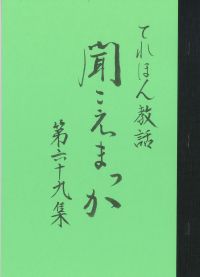 てれほん教話
聞こえまっか
第六十九集